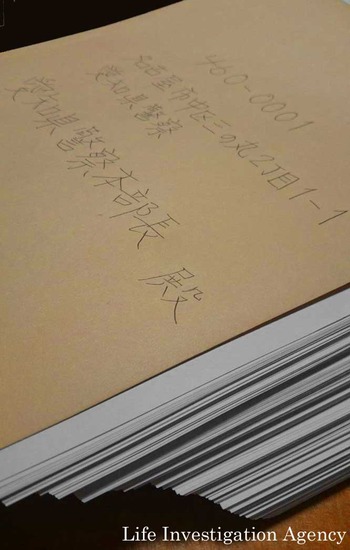 460-0001
名古屋市中区三の丸2丁目1-1
愛知県警察
愛知県警察本部長 殿
Life Investigation Agency